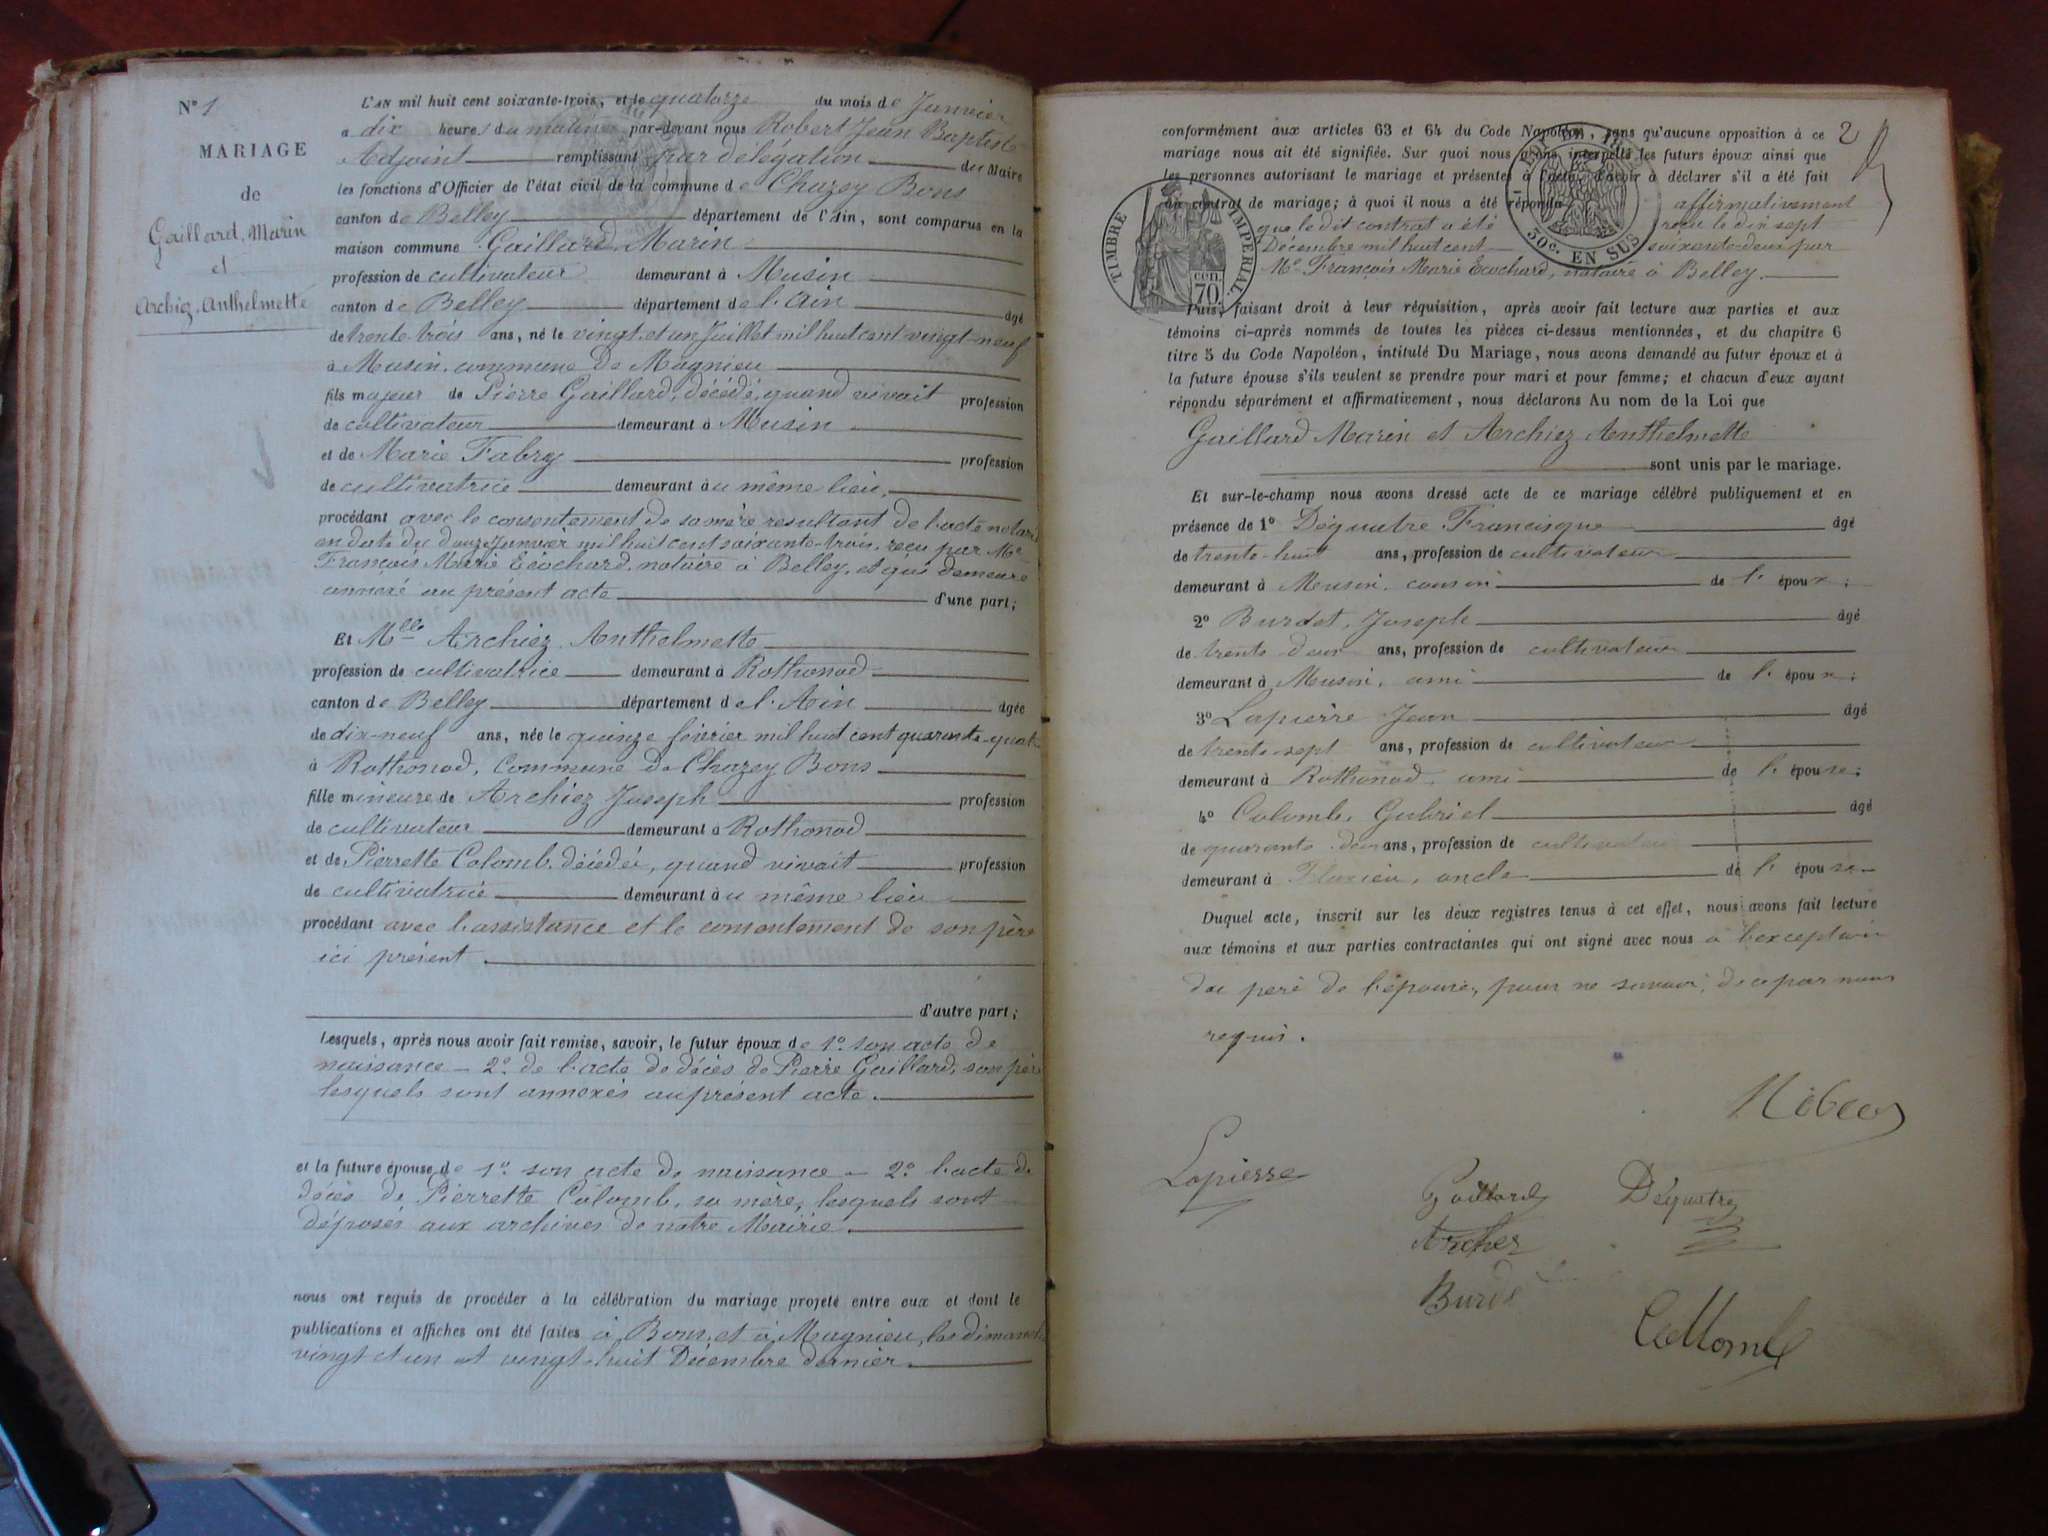 N° 1
MARIAGE
de
Gaillard, Marin
et
Archiez, Anthelmette
L'AN mil huit cent soixante-trois, et le quatorze du mois de Janvier
a dix heures du matin par-devant nous Robert Jean Baptiste
Adjoint remplissant par délégation du Maire
les fonctions d'Officier de l'état civil de la commune de Chazey Bons
canton de Belley département de l'Ain, sont comparus en la
maison commune Gaillard Marin
profession de cultivateur demeurant à Musin
canton de Belley département de l'Ain âgé
de trente-trois ans, né le vingt-et-un Juillet mil huit cent vingt-neuf
à Musin, commune de Magnieu
fils majeur de Pierre Gaillard, décédé, quand vivait profession
de cultivateur demeurant à Musin
et de Marie Fabry profession
de cultivatrice demeurant au même lieu,
procédant avec le consentement de sa mère resultant de l'acte notarié
en date du douze Janvier mil huit cent soixante-trois, reçu par Me
François Marie Ecochard, notaire à Belley, et qui demeure
annéxé au présent acte d'une part;
Et Mlle Archiez Anthelmette
profession de cultivatrice demeurant à Rothonod
canton de Belley département de l'Ain âgée
de dix-neuf ans, née le quinze février mil huit cent quarante-quatre
à Rothonod, Commune de Chazey Bons
fille mineure de Archiez Joseph profession
de cultivateur demeurant à Rothonod
et de Pierrette Colomb, décédée, quand vivait profession
de cultivatrice demeurant au même lieu
procédant avec l'assistance et le consentement de son père
ici présent
d'autre part;
Lesquels, après nous avoir fait remise, savoir, le futur époux de 1° son acte de
naissance - 2° de l'acte de décès de Pierre Gaillard, son père
lesquels sont annexés au présent acte.
et la future épouse de 1° son acte de naissance - 2° l'acte de
décès de Pierrette Colomb, sa mère, lesquels sont
déposés aux archives de notre Mairie.
nous ont requis de procéder à la célébration du mariage projeté entre eux et dont le
publications et affiches ont été faites à Bons, et à Magnieu, les dimanches
vingt et un et vingt-huit Décembre dernier.
2
conformément aux articles 63 et 64 du Code Napoléon, sans qu'aucune opposition à ce
mariage nous ait été signifiée. Sur quoi nous avons interpellé les futurs époux ainsi que
les personnes autorisant le mariage et présentes à l'acte, d'avoir à déclarer s'il a été fait
un contrat de mariage; à quoi il nous a été répondu affirmativement
que le dit contrat a été reçu le dix sept
Décembre mil huit cent soixante-deux par
Me François Marie Ecochard, notaire à Belley.
TIMBRE IMPERIAL
cen. 70
30c. EN SUS
Puis, faisant droit à leur réquisition, après avoir fait lecture aux parties et aux
témoins ci-après nommés de toutes les pièces ci-dessus mentionnées, et du chapitre 6
titre 5 du Code Napoléon, intitulé Du Mariage, nous avons demandé au futur époux et à
la future épouse s'ils veulent se prendre pour mari et pour femme; et chacun d'eux ayant
répondu séparément et affirmativement, nous déclarons Au nom de la Loi que
Gaillard Marin et Archiez Anthelmette
sont unis par le mariage.
Et sur-le-champ nous avons dressé acte de ce mariage célébré publiquement et en
présence de 1° Déquatre Francisque âgé
de trente-huit ans, profession de cultivateur
demeurant à Musin, cousin de l'époux;
2° Burdet, Joseph âgé
de trente deux ans, profession de cultivateur
demeurant à Musin, ami de l'époux;
3° Lapierre Jean âgé
de trente-sept ans, profession de cultivateur
demeurant à Rothonod, ami de l'épouse;
4° Colomb, Gabriel âgé
de quarante deux ans, profession de cultivateur
demeurant à oncle de l'épouse
Duquel acte, inscrit sur les deux registres tenus à cet effet, nous avons fait lecture
aux témoins et aux parties contractantes qui ont signé avec nous à l'exception
du père de l'épouse, pour ne savoir, de ce par nous
requis.
Lapierre
Gaillard
Déquatre
Archez
Burd
Collomb